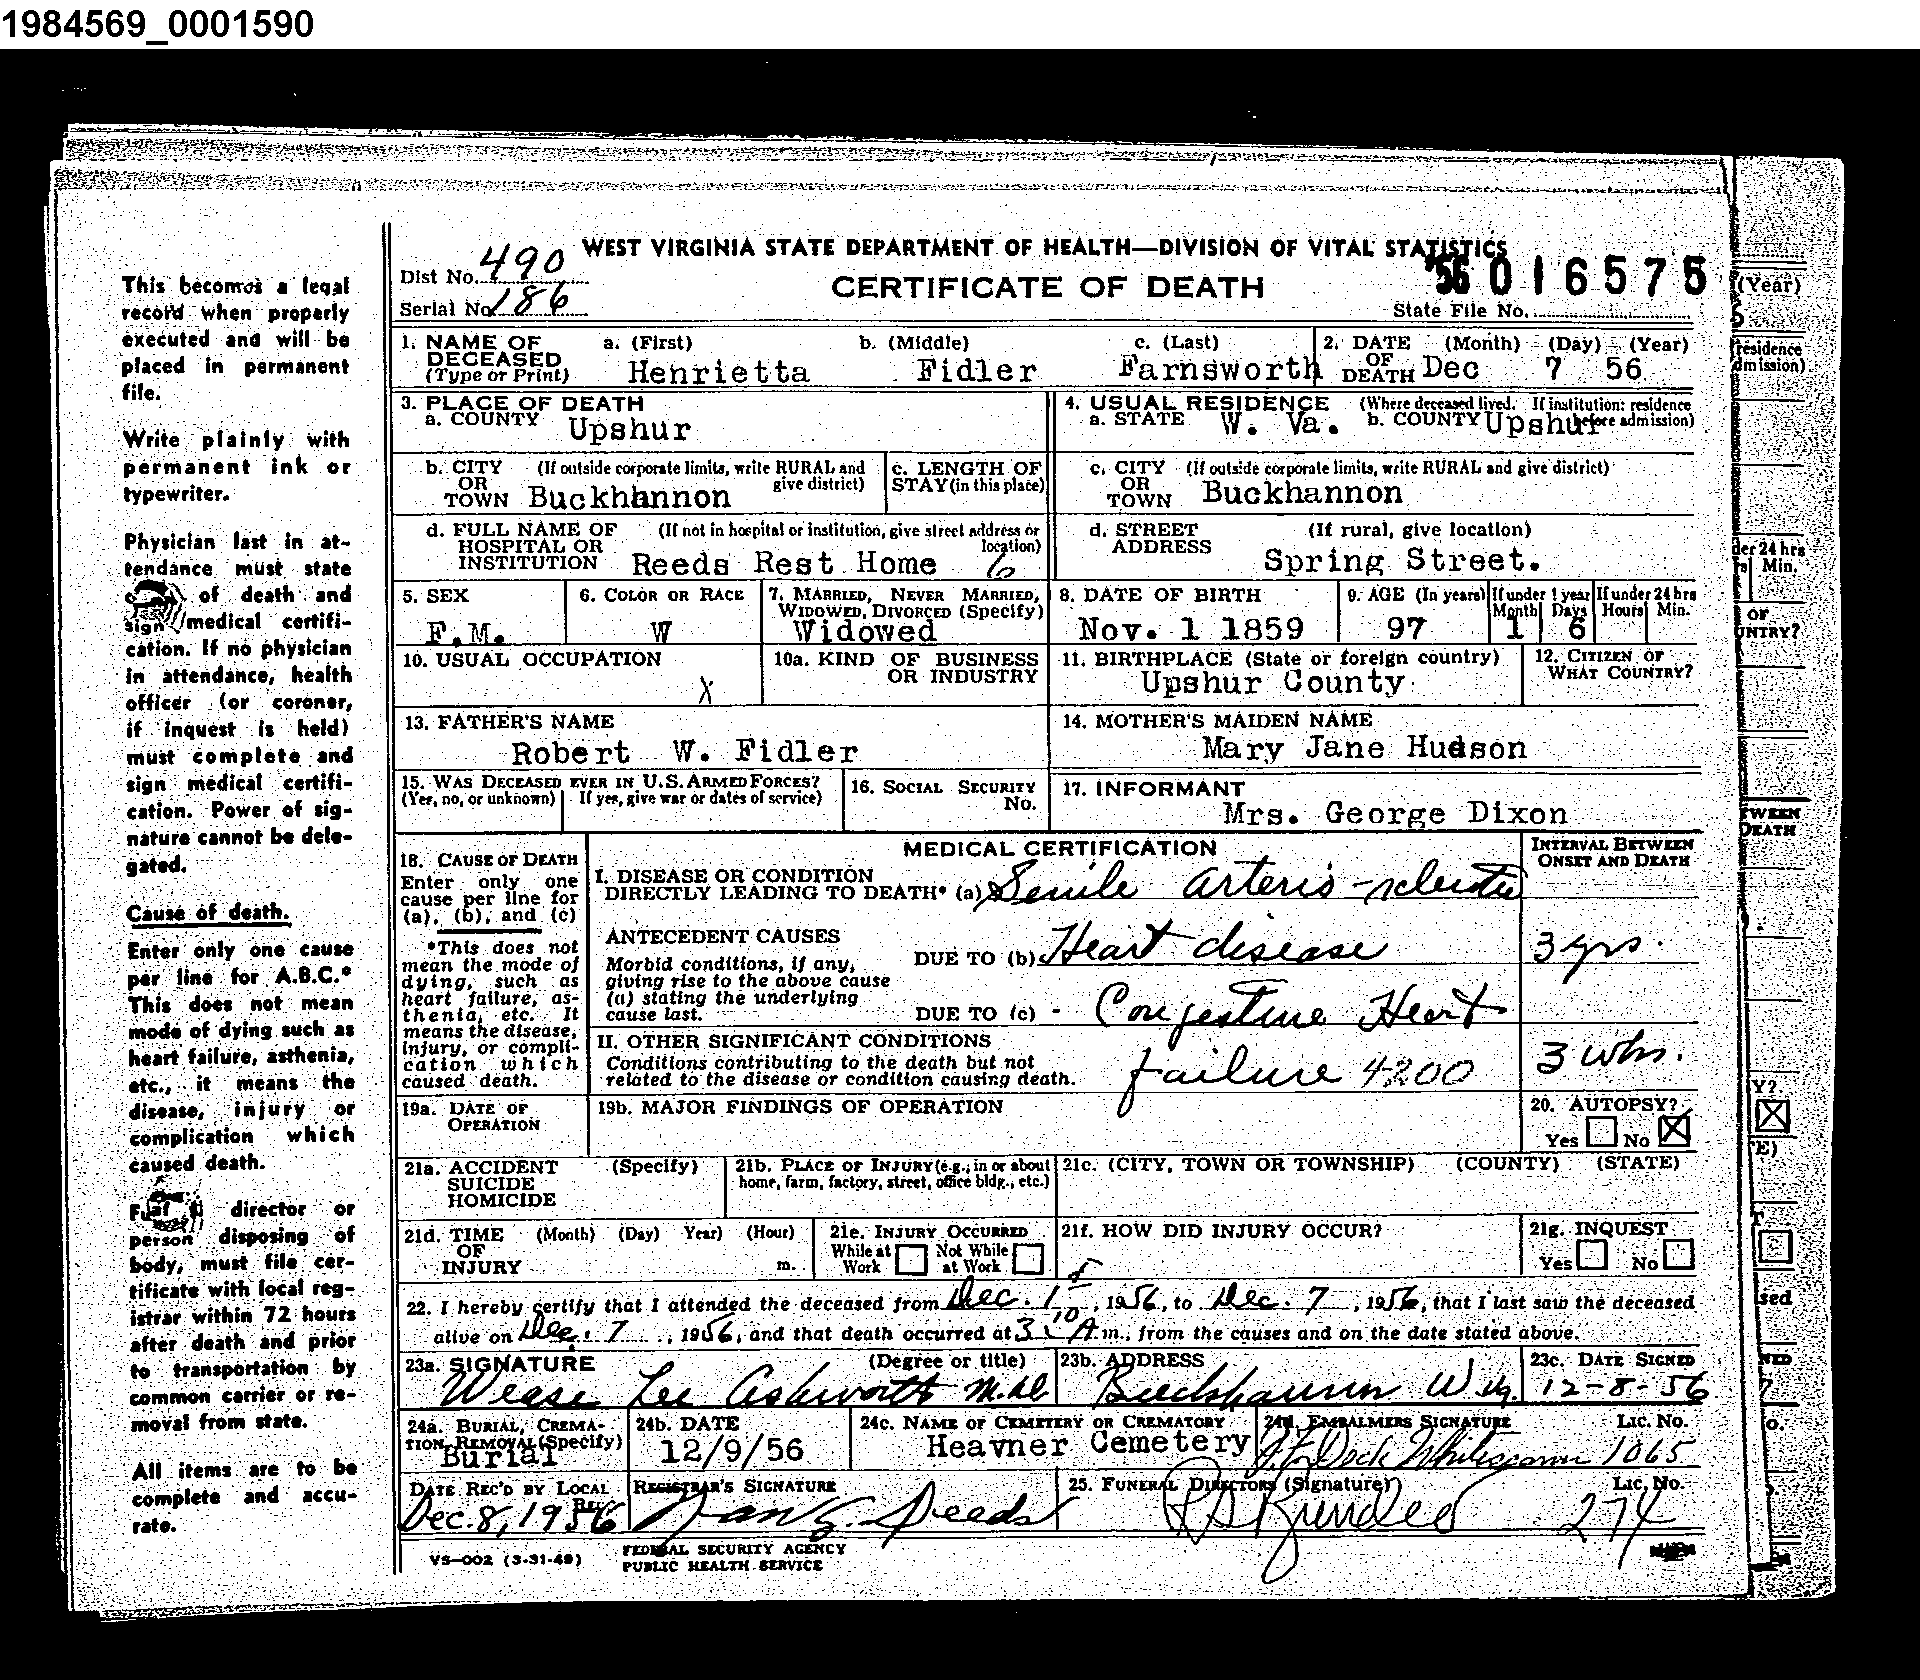 1984569_0001590
WEST VIRGINIA STATE DEPARTMENT OF HEALTH—DIVISION OF VITAL STATISTICS
CERTIFICATE OF DEATH
Dist No. 490
Serial No. 186
56 016575
State File No.
This becomes a legal
record when properly
executed and will be
placed in permanent
file.
Write plainly with
permanent ink or
typewriter.
Physician last in at-
tendance must state
of death and
sign medical certifi-
cation. If no physician
in attendance, health
officer (or coroner,
if inquest is held)
must complete and
sign medical certifi-
cation. Power of sig-
nature cannot be dele-
gated.
Cause of death.
Enter only one cause
per line for A.B.C.*
This does not mean
mode of dying such as
heart failure, asthenia,
etc., it means the
disease, injury or
complication which
caused death.
director or
person disposing of
body, must file cer-
tificate with local reg-
istrar within 72 hours
after death and prior
to transportation by
common carrier or re-
moval from state.
All items are to be
complete and accu-
rate.
1. NAME OF DECEASED (Type or Print) a. (First) Henrietta b. (Middle) Fidler c. (Last) Farnsworth
2. DATE OF DEATH (Month) (Day) (Year) Dec 7 56
3. PLACE OF DEATH
a. COUNTY Upshur
4. USUAL RESIDENCE (Where deceased lived. If institution: residence before admission)
a. STATE W. Va. b. COUNTY Upshur
b. CITY OR TOWN (If outside corporate limits, write RURAL and give district) Buckhannon
c. LENGTH OF STAY (in this place)
c. CITY OR TOWN (If outside corporate limits, write RURAL and give district) Buckhannon
d. FULL NAME OF HOSPITAL OR INSTITUTION (If not in hospital or institution, give street address or location) Reeds Rest Home 6
d. STREET ADDRESS (If rural, give location) Spring Street.
5. SEX F.M.
6. COLOR OR RACE W
7. MARRIED, NEVER MARRIED, WIDOWED, DIVORCED (Specify) Widowed
8. DATE OF BIRTH Nov. 1 1859
9. AGE (In years) 97 If under 1 year Month 1 Days 6 If under 24 hrs Hours Min.
10. USUAL OCCUPATION X
10a. KIND OF BUSINESS OR INDUSTRY
11. BIRTHPLACE (State or foreign country) Upshur County
12. CITIZEN OF WHAT COUNTRY?
13. FATHER'S NAME Robert W. Fidler
14. MOTHER'S MAIDEN NAME Mary Jane Hudson
15. WAS DECEASED EVER IN U.S. ARMED FORCES? (Yes, no, or unknown) If yes, give war or dates of service)
16. SOCIAL SECURITY No.
17. INFORMANT Mrs. George Dixon
MEDICAL CERTIFICATION
INTERVAL BETWEEN ONSET AND DEATH
18. CAUSE OF DEATH
Enter only one
cause per line for
(a), (b), and (c)
*This does not
mean the mode of
dying, such as
heart failure, as-
thenia, etc. It
means the disease,
injury, or compli-
cation which
caused death.
I. DISEASE OR CONDITION DIRECTLY LEADING TO DEATH* (a) Senile arterio-sclerotic
ANTECEDENT CAUSES
Morbid conditions, if any, giving rise to the above cause (a) stating the underlying cause last.
DUE TO (b) Heart disease 3 yrs.
DUE TO (c) - Congestive Heart
failure 4200 3 wks.
II. OTHER SIGNIFICANT CONDITIONS
Conditions contributing to the death but not
related to the disease or condition causing death.
19a. DATE OF OPERATION
19b. MAJOR FINDINGS OF OPERATION
20. AUTOPSY?
Yes No X
21a. ACCIDENT SUICIDE HOMICIDE (Specify)
21b. PLACE OF INJURY (e.g., in or about home, farm, factory, street, office bldg., etc.)
21c. (CITY, TOWN OR TOWNSHIP) (COUNTY) (STATE)
21d. TIME OF INJURY (Month) (Day) Year) (Hour) m.
21e. INJURY OCCURRED While at Work Not While at Work
21f. HOW DID INJURY OCCUR?
21g. INQUEST Yes No
22. I hereby certify that I attended the deceased from Dec. 1, 1956, to Dec. 7, 1956, that I last saw the deceased
alive on Dec. 7, 1956, and that death occurred at 3 10 A.m., from the causes and on the date stated above.
23a. SIGNATURE (Degree or title) Lee Ashworth M.D.
23b. ADDRESS Buckhannon W.Va.
23c. DATE SIGNED 12-8-56
24a. BURIAL, CREMATION, REMOVAL (Specify) Burial
24b. DATE 12/9/56
24c. NAME OF CEMETERY OR CREMATORY Heavner Cemetery
24d. EMBALMERS SIGNATURE Lic. No. 1065
DATE REC'D BY LOCAL REG. Dec. 8, 1956
REGISTRAR'S SIGNATURE
25. FUNERAL DIRECTORS (Signature) Lic. No. 274
VS-002 (3-31-49)
FEDERAL SECURITY AGENCY
PUBLIC HEALTH SERVICE